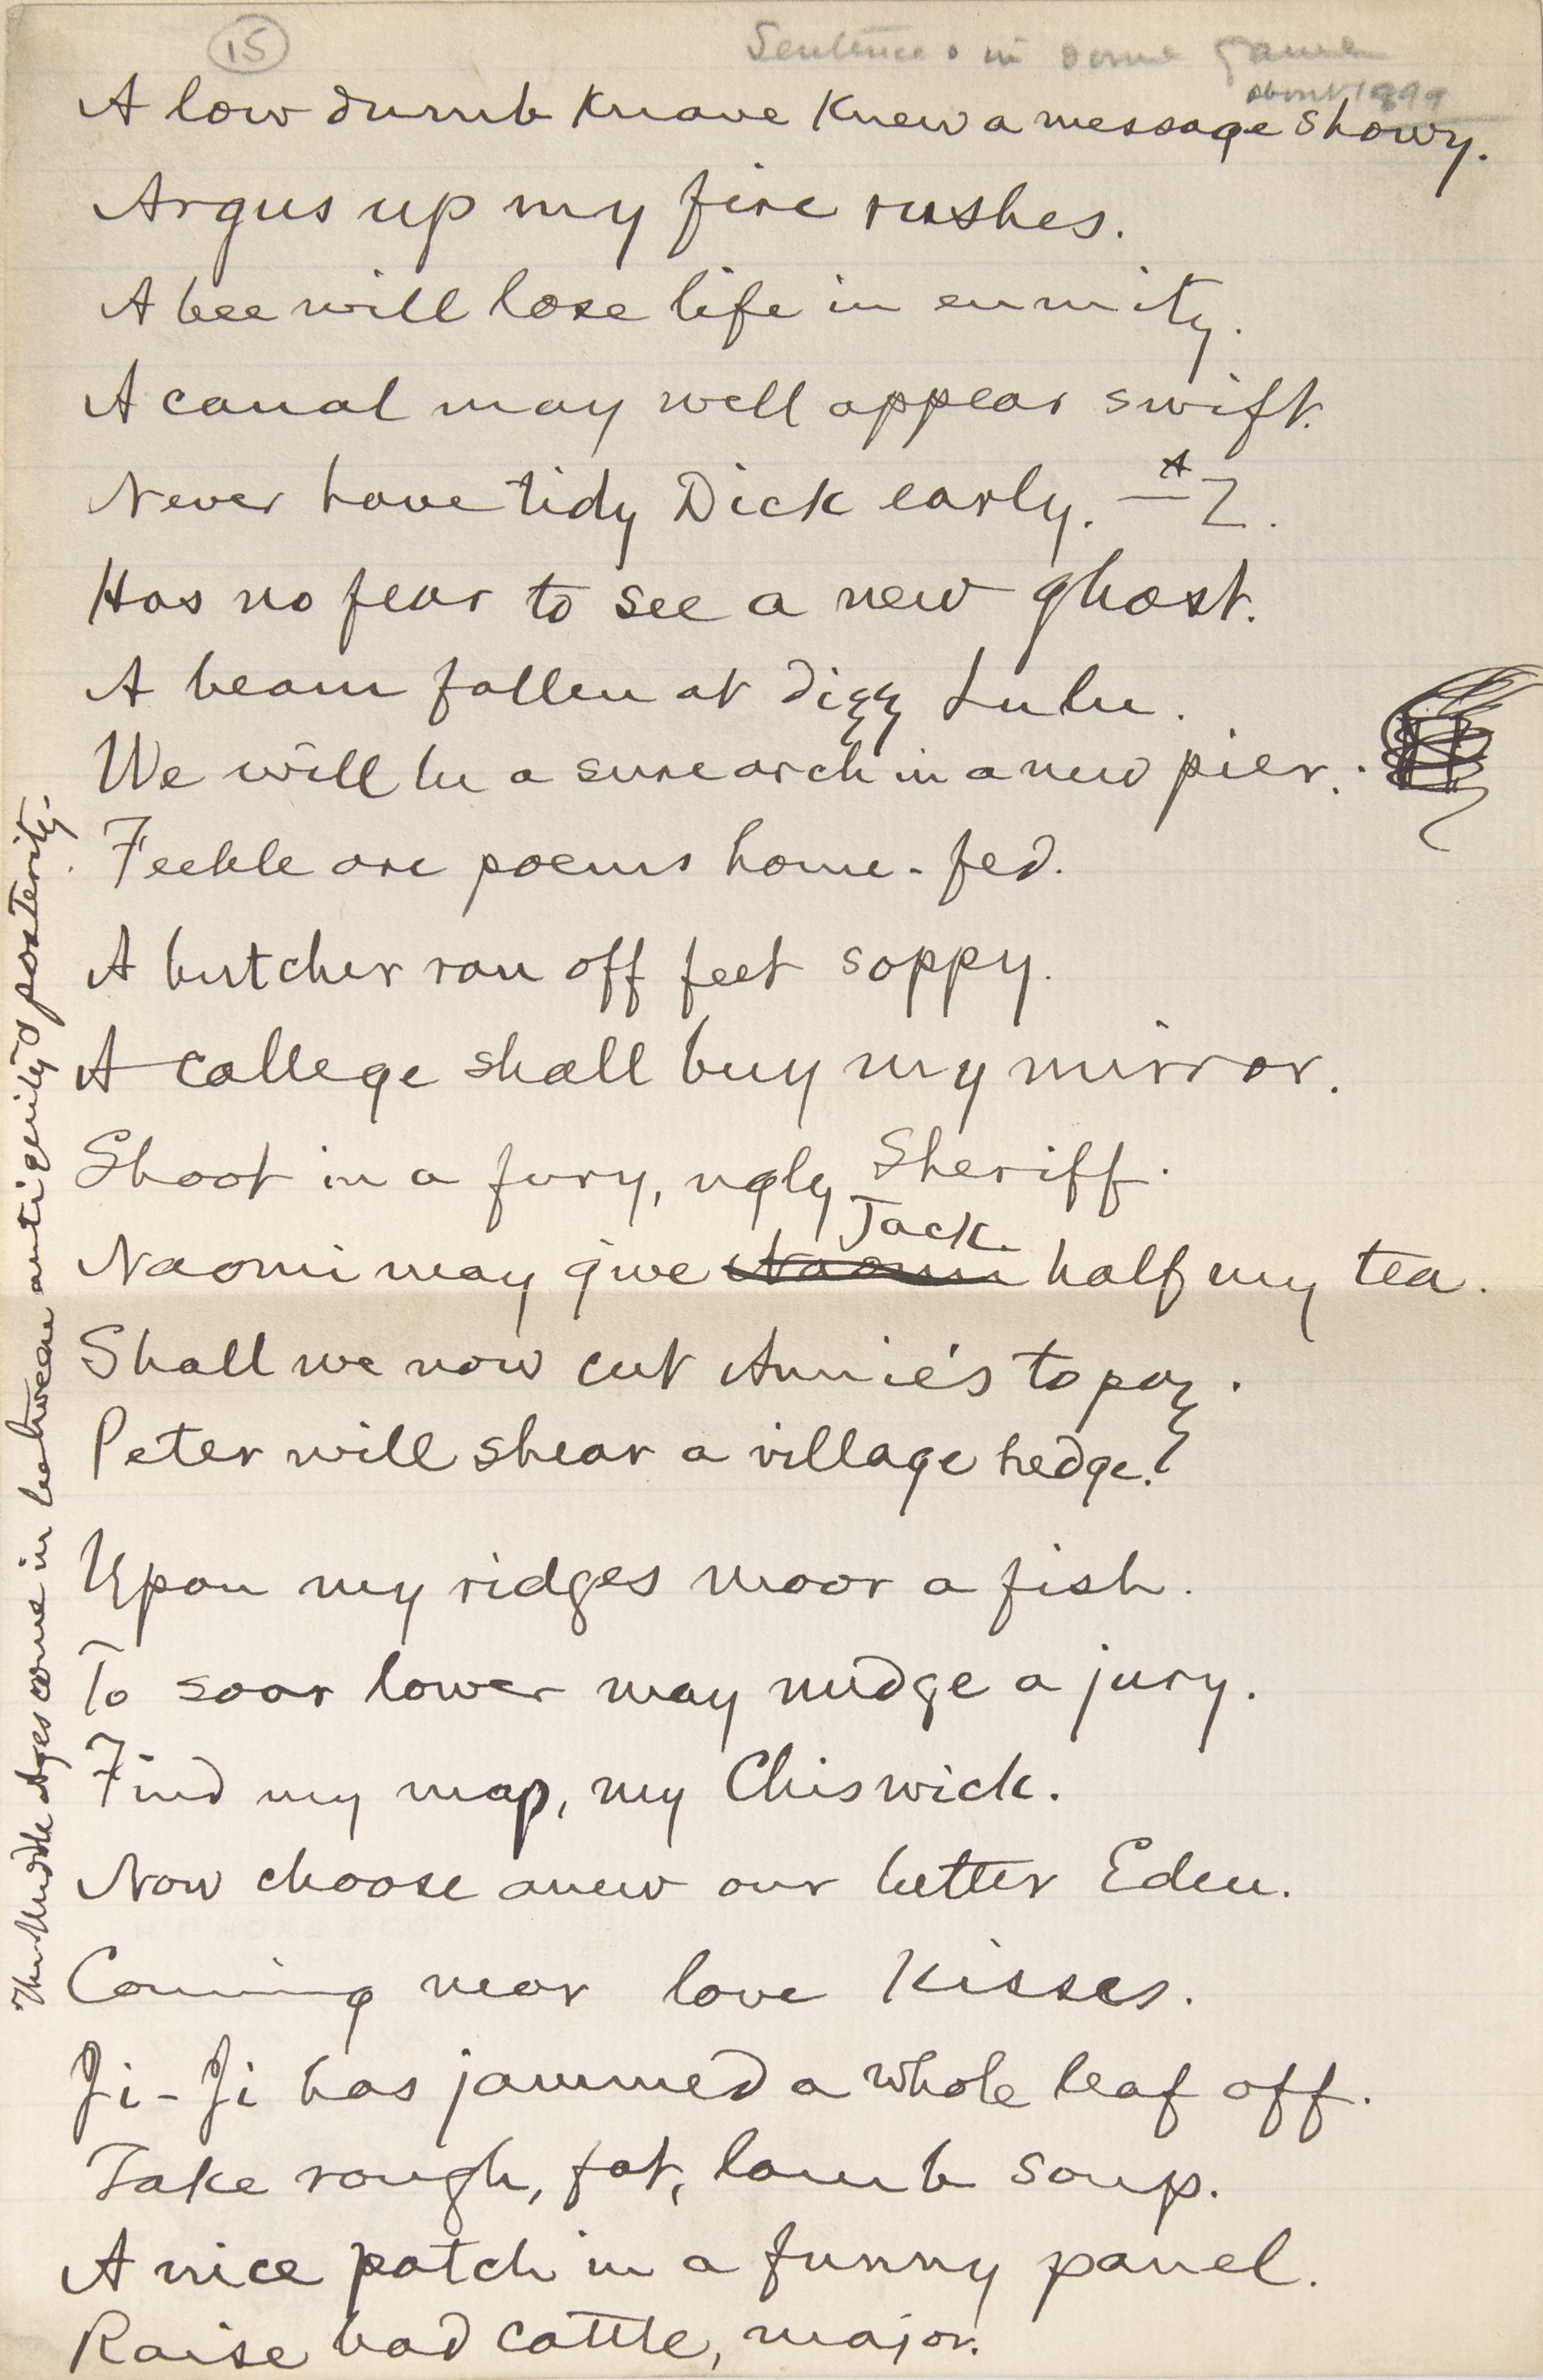 15
Sentences in some game
about 1899
A low dumb knave knew a message showy.
Argus up my fire rushes.
A bee will lose life in enmity.
A canal may well appear swift.
Never have tidy Dick early. — A Z.
Has no fear to see a new ghost.
A beam fallen at dizzy Lulu.
We will be a sure arch in a new pier.
Feeble are poems home-fed.
A butcher ran off feet soppy.
A college shall buy my mirror.
Shoot in a fury, ugly Sheriff.
Jack
Naomi may give Naomi half my tea.
Shall we now cut Annie's topaz.
Peter will shear a village hedge?
Upon my ridges moor a fish.
To soar lower may nudge a jury.
Find my map, my Chiswick.
Now choose anew our better Eden.
Coming near love kisses.
Ji-Ji has jammed a whole leaf off.
Take rough, fat, lamb soup.
A nice patch in a funny panel.
Raise bad cattle, major.
The Middle Ages come in between antiquity & posterity.